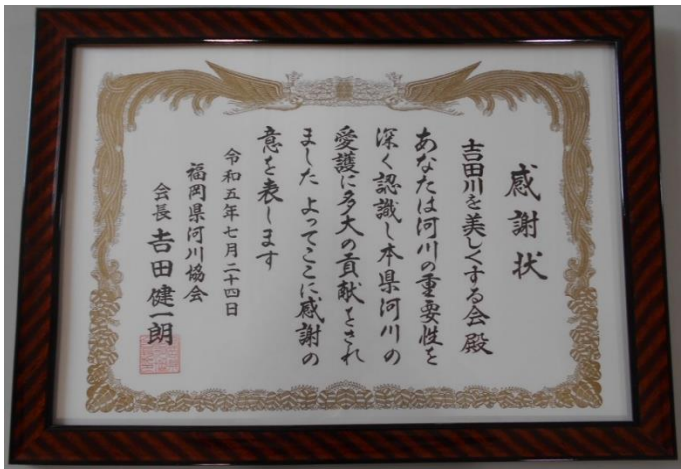 感謝状
吉田川を美しくする会 殿
あなたは河川の重要性を
深く認識し本県河川の
愛護に多大の貢献をされ
ました よってここに感謝の
意を表します
令和五年七月二十四日
福岡県河川協会
会長 𠮷田健一朗